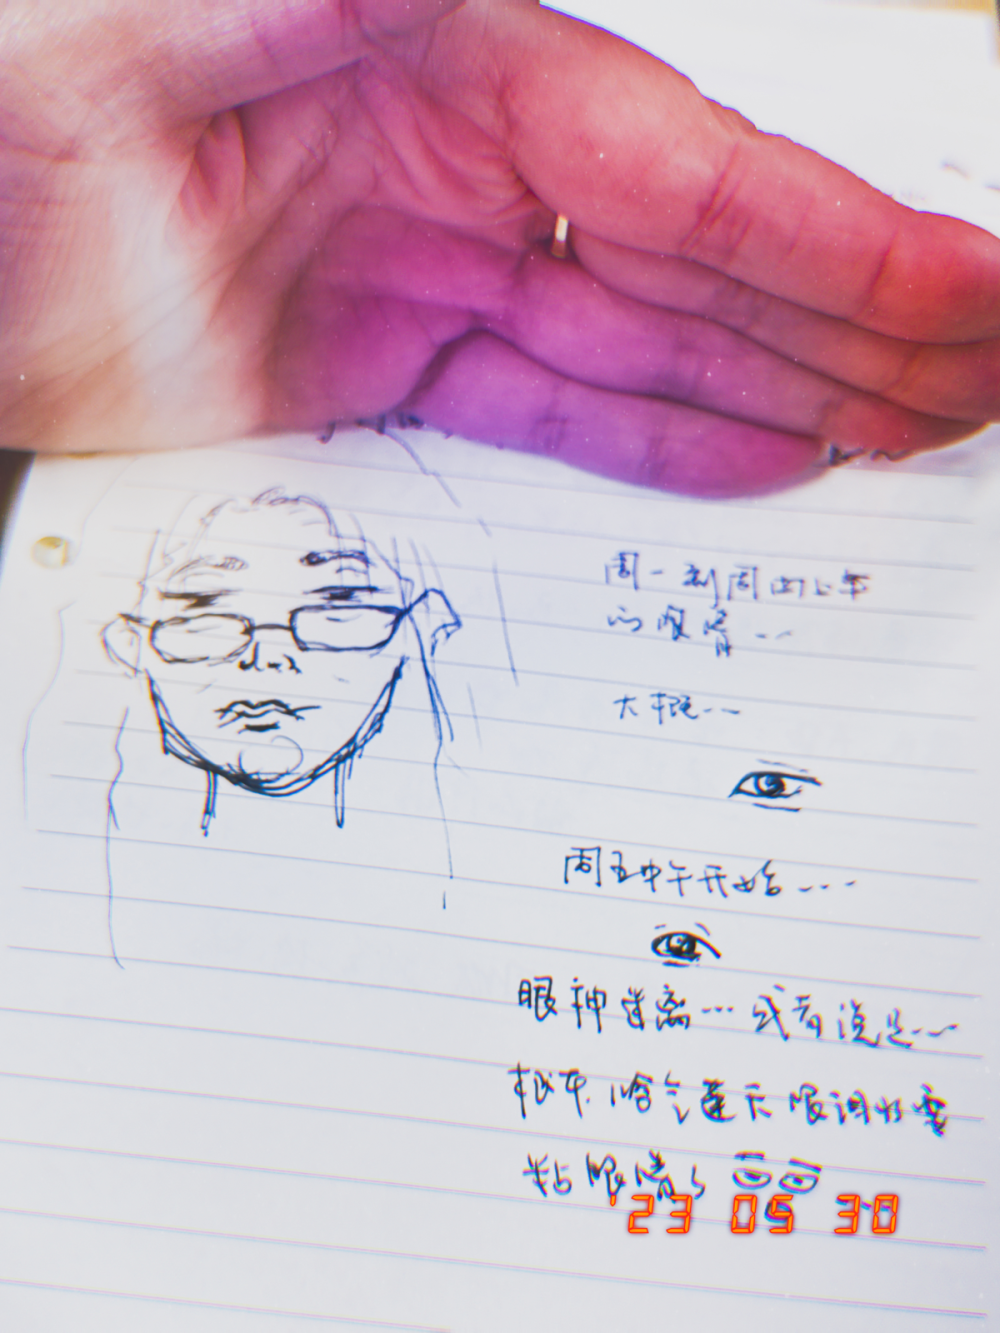 周一到周四上午
的眼睛...
大概...
周五中午开始....
眼神迷离...或者说是...
根本哈气连天眼泪水要
粘眼睛了
'23 05 30